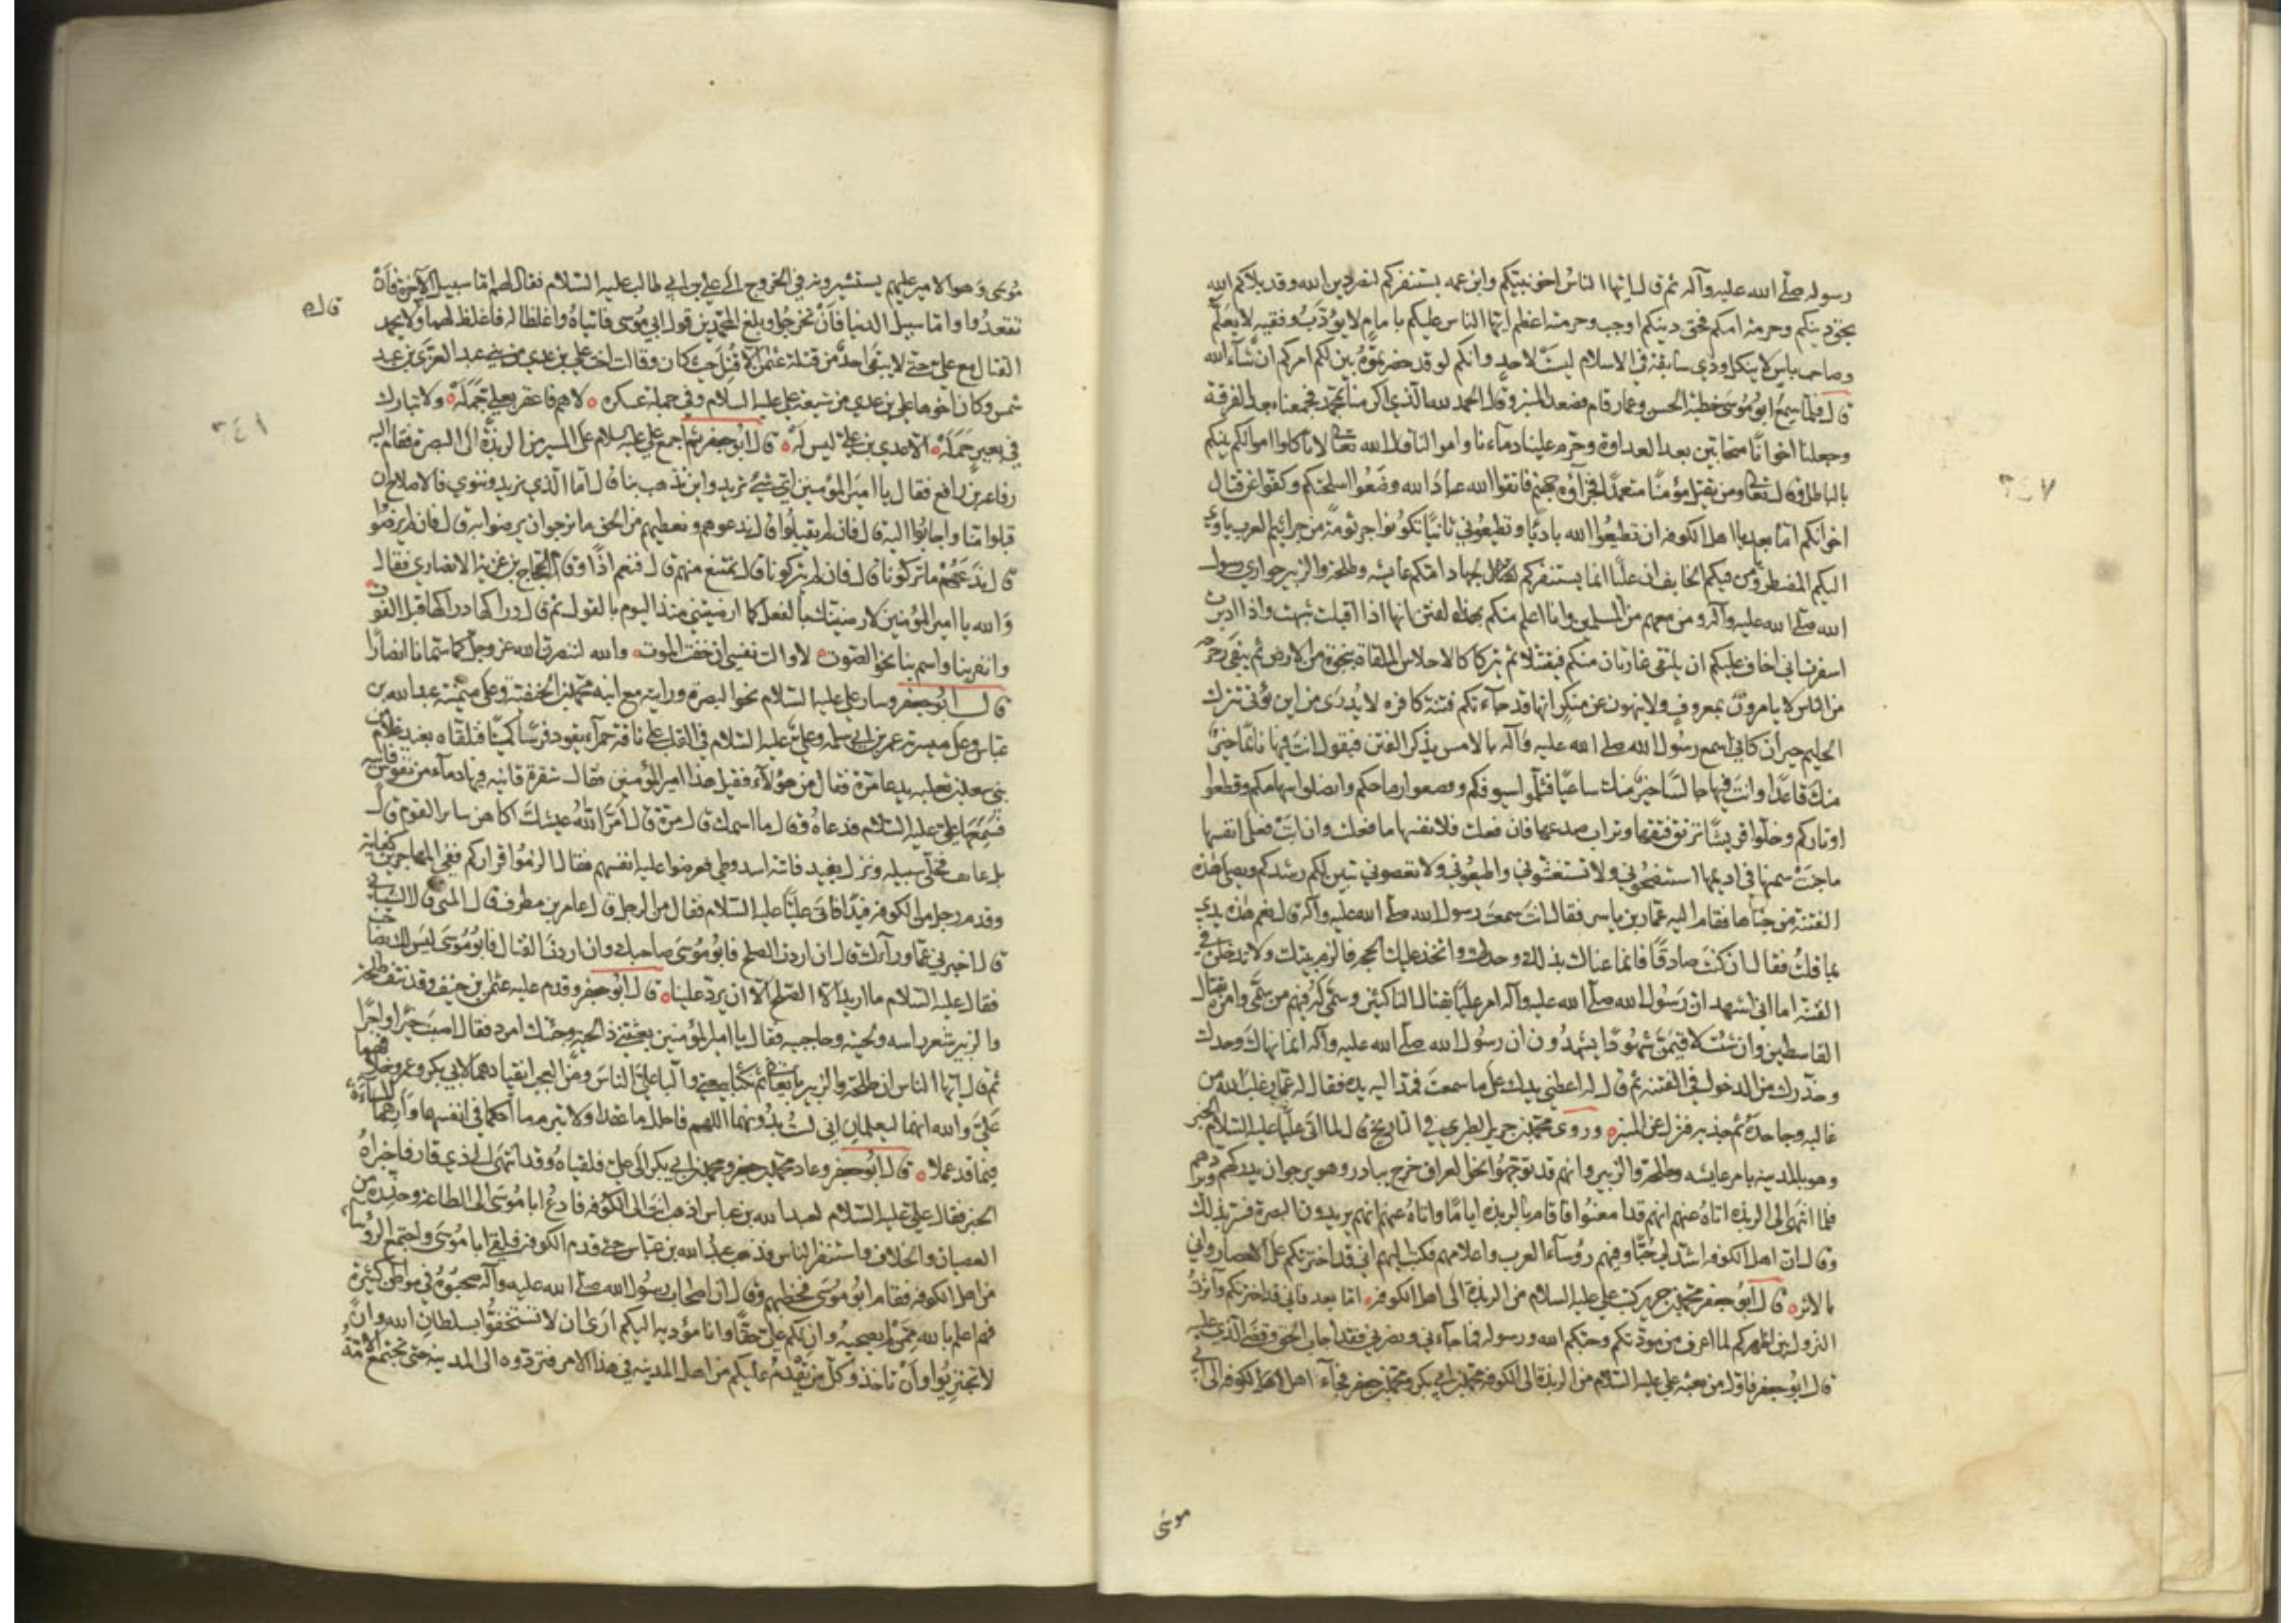 رسوله صلى الله عليه وآله ثم قال ايها الناس اخو نبيكم وابن عمه يستنفركم لنصر دين الله وقد بلاكم الله
بحق دينكم وحرمة امكم فحق دينكم اوجب وحرمته اعظم ايها الناس عليكم بامام لا يؤدب وفقيه لا يعلم
وصاحب باس لا ينكل وذي سابقة في الاسلام ليست لاحد وانكم لو قد حضرتموه بين لكم امركم ان شاء الله
قال فلما سمع ابو موسى خطبة الحسن وعمار قام فصعد المنبر وقال الحمد لله الذي اكرمنا بمحمد فجمعنا بعد الفرقة
وجعلنا اخوانا متحابين بعد العداوة وحرم علينا دماءنا واموالنا قال الله تعالى لا تاكلوا اموالكم بينكم
بالباطل وقال تعالى ومن يقتل مؤمنا متعمدا فجزاؤه جهنم فاتقوا الله عباد الله وضعوا اسلحتكم وكفوا عن قتال
اخوانكم اما بعد يا اهل الكوفه ان تطيعوا الله باديا وتطيعوني ثانيا تكونوا جرثومة من جراثيم العرب ياوي
اليكم المضطر ويأمن فيكم الخايف ان عليا انما يستنفركم لجهاد امكم عايشه وطلحة والزبير حواري رسول
الله صلى الله عليه وآله ومن معهم من المسلمين وانا اعلم منكم بهذه الفتن انها اذا اقبلت شبهت واذا ادبرت
اسفرت اني اخاف عليكم ان يلتقي غاران منكم فيقتتلا ثم يتركا كالاحلاس الملقاة بنجوة من الارض ثم يبقى رجرجة
من الناس لا يامرون بمعروف ولا ينهون عن منكر انها قد جاءتكم فتنة كافرة لا يدرى من اين تؤتى تترك
الحليم حيران كاني اسمع رسول الله صلى الله عليه وآله بالامس يذكر الفتن فيقول انت فيها نائما خير
منك قاعدا وانت فيها جالسا خير منك ساعيا فثلموا سيوفكم وقصفوا رماحكم وانصلوا سهامكم وقطعوا
اوتاركم وخلوا قريشا ترتق فتقها وتراب صدعها فان فعلت فلانفسها ما فعلت وان ابت فعلى انفسها
ما جنت سمنها في اديمها استنصحوني ولا تستغشوني واطيعوني ولا تعصوني تبين لكم رشدكم ويصلى هذه
الفتنة من جناها فقام اليه عمار بن ياسر فقال انت سمعت رسول الله صلى الله عليه وآله قال نعم هذه يدي
بما قلت فقال ان كنت صادقا فانما عناك بذلك وحدك واتخذ عليك الحجة فالزم بيتك ولا تدخلن في
الفتنة اما اني اشهد ان رسول الله صلى الله عليه وآله امر عليا بقتال الناكثين وسمى لي فيهم من سمى وامره بقتال
القاسطين وان شئت لاقيمن شهودا يشهدون ان رسول الله صلى الله عليه وآله انما نهاك وحدك
وحذرك من الدخول في الفتنه ثم قال له اعطني يدك على ما سمعت فمد اليه يده فقال له عمار غلب الله من
غالبه وجاحده ثم جذبه فنزل عن المنبر وروى محمد بن جرير الطبري في التاريخ قال لما اتى عليا عليه السلام الخبر
وهو بالمدينه بامر عايشه وطلحة والزبير وانهم قد توجهوا نحو العراق خرج يبادر وهو يرجو ان يدركهم ويردهم
فلما انتهى الى الربذه اتاه عنهم انهم قد امعنوا فاقام بالربذه اياما واتاه عنهم انهم يريدون البصرة فسر بذلك
وقال ان اهل الكوفه اشد لي حبا وفيهم رؤساء العرب واعلامهم فكتب اليهم اني قد اخترتكم على الامصار واني
بالاثر قال ابو جعفر محمد بن جرير كتب علي عليه السلام من الربذة الى اهل الكوفة اما بعد فاني قد اخترتكم وآثرت
النزول بين اظهركم لما اعرف من مودتكم وحبكم الله ورسوله فمن جاءني ونصرني فقد اجاب الحق وقضى الذي عليه
قال ابو جعفر فاول من بعثه علي عليه السلام من الربذة الى الكوفة محمد بن ابي بكر ومحمد بن جعفر فجاء اهل الكوفه الى ابي
موسى
٦٤٧
موسى وهو الامير عليهم يستشيرونه في الخروج الى علي بن ابي طالب عليه السلام فقال لهم اما سبيل الآخرة فان
تقعدوا واما سبيل الدنيا فان تخرجوا وبلغ المحمدين قول ابي موسى فاتياه واغلظا له فاغلظ لهما وقال لا يحل
القتال مع علي حتى لا يبقى احد من قتلة عثمن الا قتل حيث كان وقالت اخت علي بن عدي من بني عبد العزى بن عبد
شمس وكان اخوها علي بن عدي من شيعة علي عليه السلام وفي جملة عسكره لاهم فاعقر بعلي جمله ولا تبارك
في بعير حمله الا علي بن عدي ليس له قال ابو جعفر ثم اجمع علي عليه السلام على المسير من الربذة الى البصرة فقام اليه
رفاعة بن رافع فقال يا امير المؤمنين اي شئ تريد واين تذهب بنا قال اما الذي نريد وننوي فالاصلاح ان
قبلوا منا واجابوا اليه قال فان لم يقبلوا قال ندعوهم ونعطيهم من الحق ما نرجو ان يرضوا به قال فان لم يرضوا
قال ندعهم ما تركونا قال فان لم يتركونا قال نمتنع منهم قال فنعم اذا وقام الحجاج بن غزية الانصاري فقال
والله يا امير المؤمنين لارضينك بالفعل كما ارضيتني منذ اليوم بالقول ثم قال دراكها دراكها قبل الفوت
وانفر بنا واسم بنا نحو الصوت لا والت نفسي ان خفت الموت والله لننصرن الله عز وجل كما سمانا انصارا
قال ابو جعفر وسار علي عليه السلام نحو البصرة ورايته مع ابنه محمد بن الحنفية وعلى ميمنته عبد الله بن
عباس وعلى ميسرته عمر بن ابي سلمه وعلي عليه السلام في القلب على ناقة حمراء يقود فرسا كميتا فتلقاه بفيد غلام من
بني سعد بن ثعلبه يدعى مرة فقال من هؤلاء فقيل هذا امير المؤمنين فقال سفرة قانيه فيها دماء من نفوس فانيه
فسمعها علي عليه السلام فدعاه فقال ما اسمك قال مرة قال امر الله عيشك اكاهن ساير القوم قال
بل عائف فخلى سبيله ونزل بفيد فاتته اسد وطي فعرضوا عليه انفسهم فقال الزموا قراركم ففي المهاجرين كفايه
وقدم رجل من الكوفه فيدا فاتى عليا عليه السلام فقال من الرجل قال عامر بن مطرف قال الليثي قال الشيباني
قال اخبرني عما وراءك قال ان اردت الصلح فابو موسى صاحبك وان اردت القتال فابو موسى ليس لك بصاحب
فقال عليه السلام ما اريد الا الصلح الا ان يرد علينا قال ابو جعفر وقدم عليه عثمن بن حنيف وقد نتف طلحة
والزبير شعر راسه ولحيته وحاجبيه فقال يا امير المؤمنين بعثتني ذا لحية وجئتك امرد فقال اصبت خيرا واجرا
ثم قال ايها الناس ان طلحة والزبير بايعاني ثم نكثا بيعتي والبا علي الناس ومن العجب انقيادهما لابي بكر وعمر وخلافهما
علي والله انهما ليعلمان اني لست بدونهما اللهم فاحلل ما عقدا ولا تبرم ما احكما في انفسهما وارهما المساءة
فيما قد عملا قال ابو جعفر وعاد محمد بن جعفر ومحمد بن ابي بكر الى علي فلقياه وقد انتهى الى ذي قار فاخبراه
الخبر فقال علي عليه السلام لعبد الله بن عباس اذهب انت الى الكوفه فادع ابا موسى الى الطاعة وحذره من
العصيان والخلاف واستنفر الناس فذهب عبد الله بن عباس حتى قدم الكوفة فلقي ابا موسى واجتمع الرؤساء
من اهل الكوفه فقام ابو موسى فخطبهم وقال ان اصحاب رسول الله صلى الله عليه وآله صحبوه في مواطن كثيرة
فهم اعلم بالله ممن لم يصحبه وان لكم علي حقا وانا مؤديه اليكم ارى ان لا تستخفوا بسلطان الله وان
لا تجتروا وان تاخذوا كل من قدم عليكم من اهل المدينه في هذا الامر فتردوه الى المدينه حتى تجتمع الامة